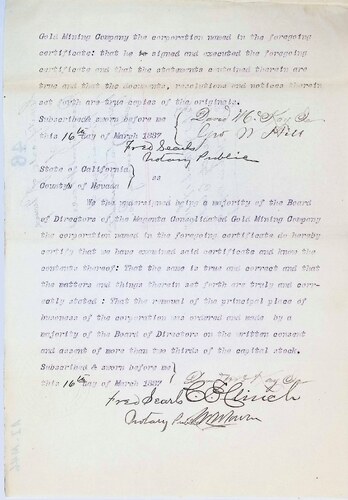 Gold Mining Company the corporation named in the foregoing
certificate: that he signed and executed the foregoing
certificate and that the statements contained therein are
true and that the documents, resolutions and notices therein
set forth are true copies of the originals.
Subscribed & sworn before me
this 16th day of March 1887
Geo N Hill
Fred Searls
Notary Public
State of California
County of Nevada
ss
We the undersigned being a majority of the Board
of Directors of the Consolidated Gold Mining Company
the corporation named in the foregoing certificate do hereby
certify that we have examined said certificate and know the
contents thereof: That the same is true and correct and that
the matters and things therein set forth are truly and corr-
ectly stated : That the removal of the principal place of
business of the corporation was ordered and made by a
majority of the Board of Directors on the written consent
and assent of more than two thirds of the capital stock.
Subscribed & sworn before me
this 16th day of March 1887
Fred Searls
Notary Public